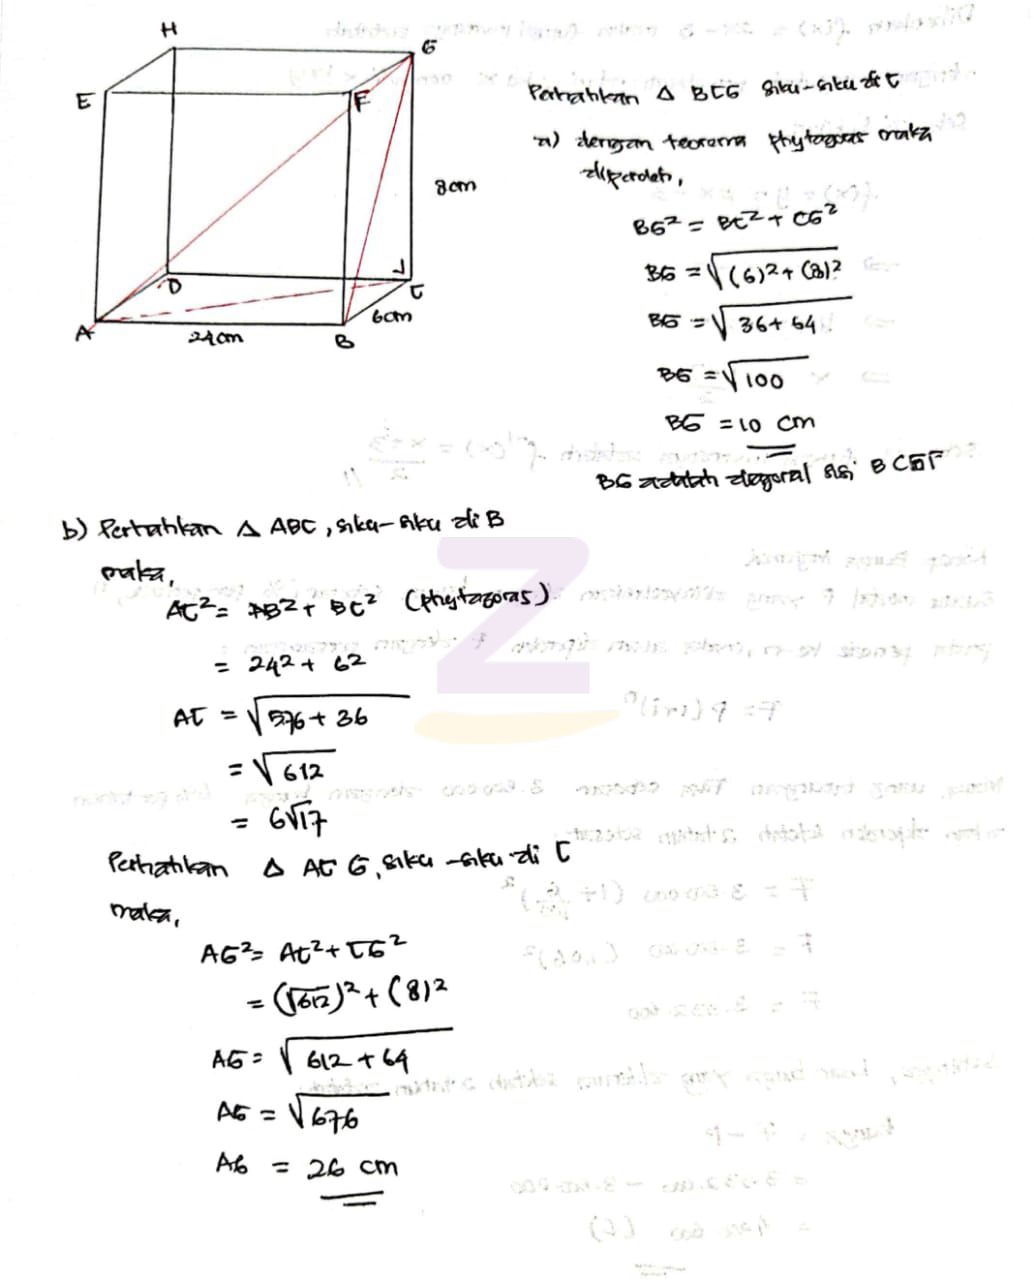 H
G
E
F
8cm
D
C
A
24cm
B
6cm
Perhatikan Δ BCG siku-siku di C
a) dengan teorema phytagoras maka
diperoleh,
BG² = BC² + CG²
BG = √(6)² + (8)²
BG = √36 + 64
BG = √100
BG = 10 cm
BG adalah diagonal sisi BCGF
b) Perhatikan Δ ABC, siku-siku di B
maka,
AC² = AB² + BC² (phytagoras)
= 24² + 6²
AC = √576 + 36
= √612
= 6√17
Perhatikan Δ ACG, siku-siku di C
maka,
AG² = AC² + CG²
= (√612)² + (8)²
AG = √612 + 64
AG = √676
AG = 26 cm